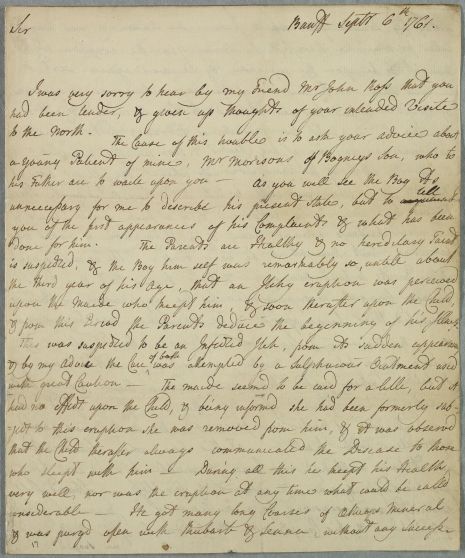 Sir
Banff Septr 6th 1761.
I was very sorry to hear by my Friend Mr John Ross that you
had been tender, & given up thoughts of your intended Visite
to the North. -
The Cause of this trouble is to ask your advice about
a young Patient of mine, Mr Morisons of Bogneys Son, who to
his Father are to waite upon you - as you will see the Boy its
unnecessary for me to describe his present State, but to tell
you of the first appearances of his Complaints & what has been
done for him. The Parents are Healthy & no hereditary Taint
is suspected, & the Boy him self was remarkably so, untill about
the third year of his Age, that an Itchy eruption was perceived
upon the Maide who keept him & soon therafter upon the Child,
& from this Period the Parents deduce the beginning of his
This was suspected to be an Infected Itch, from its sudden appearance
& by my advice the Cure of both was attempted by a Sulphureous Ointment used
with great Caution - The maide seemed to be cured for a little, but it
had no effect upon the Child, & being informd she had been formerly sub-
-ject to this eruption she was removed from him, & it was observed
that the Child therafter always communicated the Disease to those
who sleept with him - During all this he keept his Health
very well, nor was the eruption at any time what could be called
considerable - He got many long Courses of Æthiops Mineral
& was purgd often with Rhubarb & Senna, without any Success